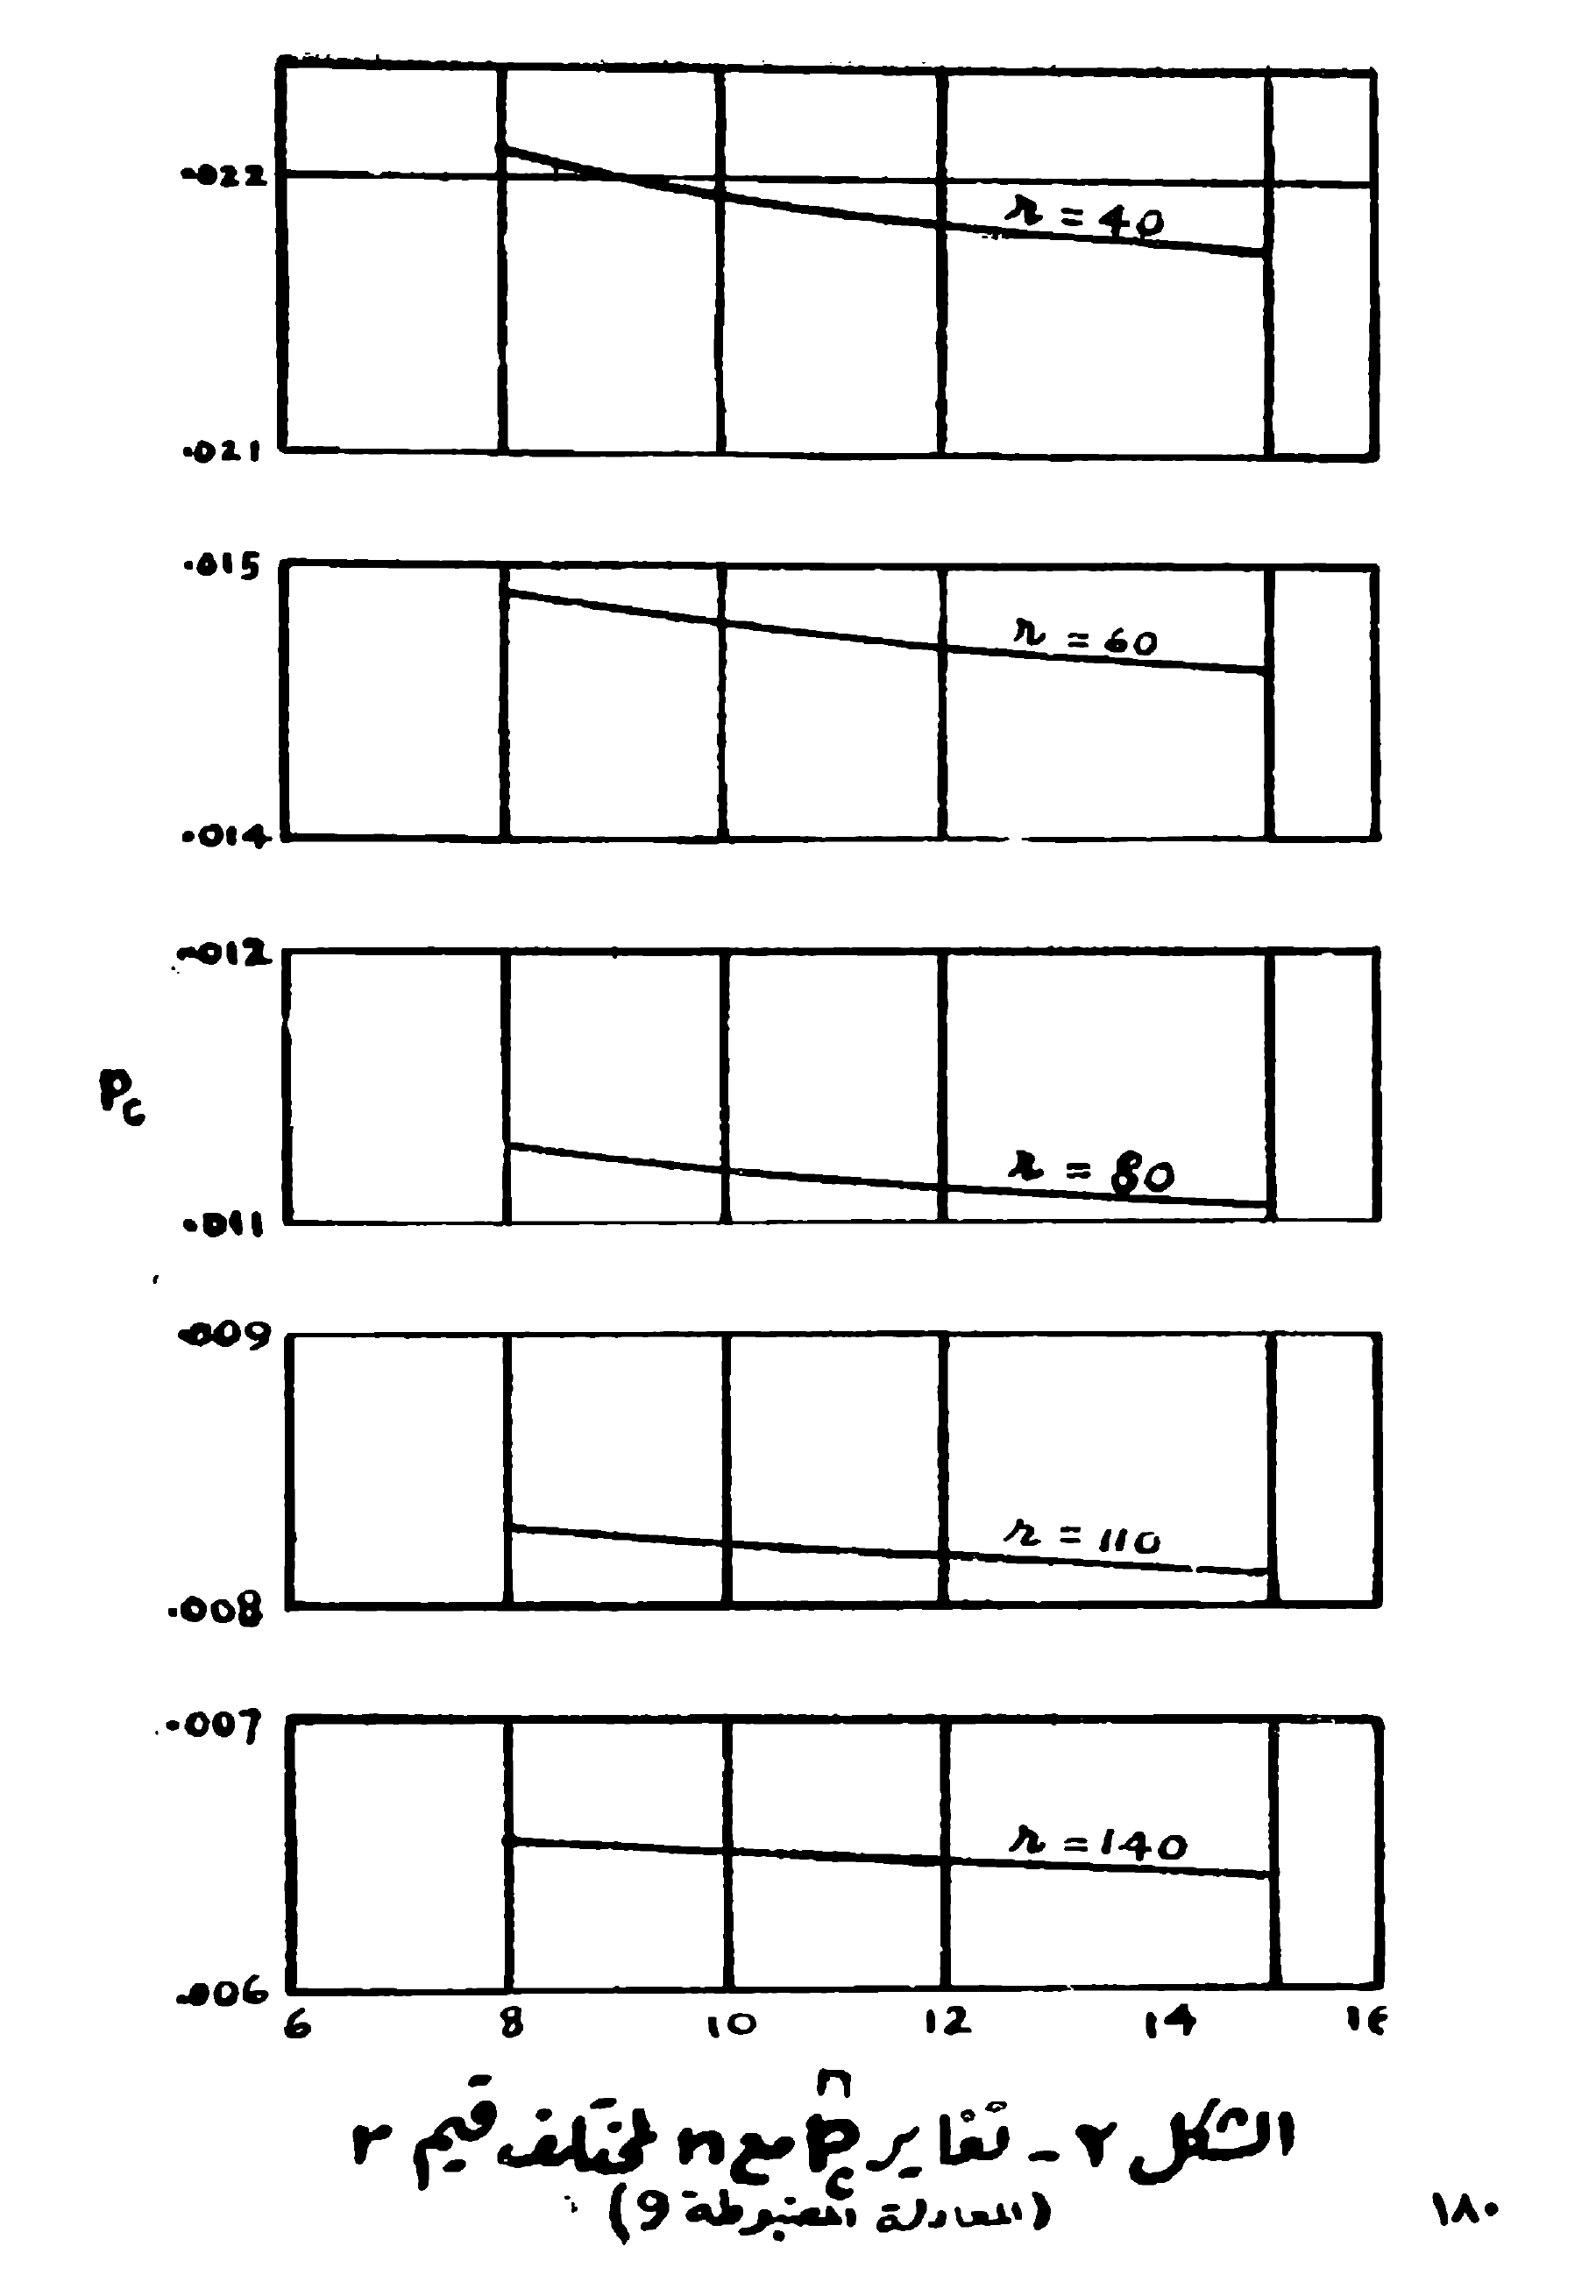 .022
r = 40
.021
.015
r = 60
.014
.012
r = 80
.011
Pc
.009
r = 110
.008
.007
r = 140
.006
6 8 10 12 14 16
n
الشكل ٢ - تغاير Pc مع n لمختلف قيم r
(المعادلة المضبوطة 9)
١٨٠